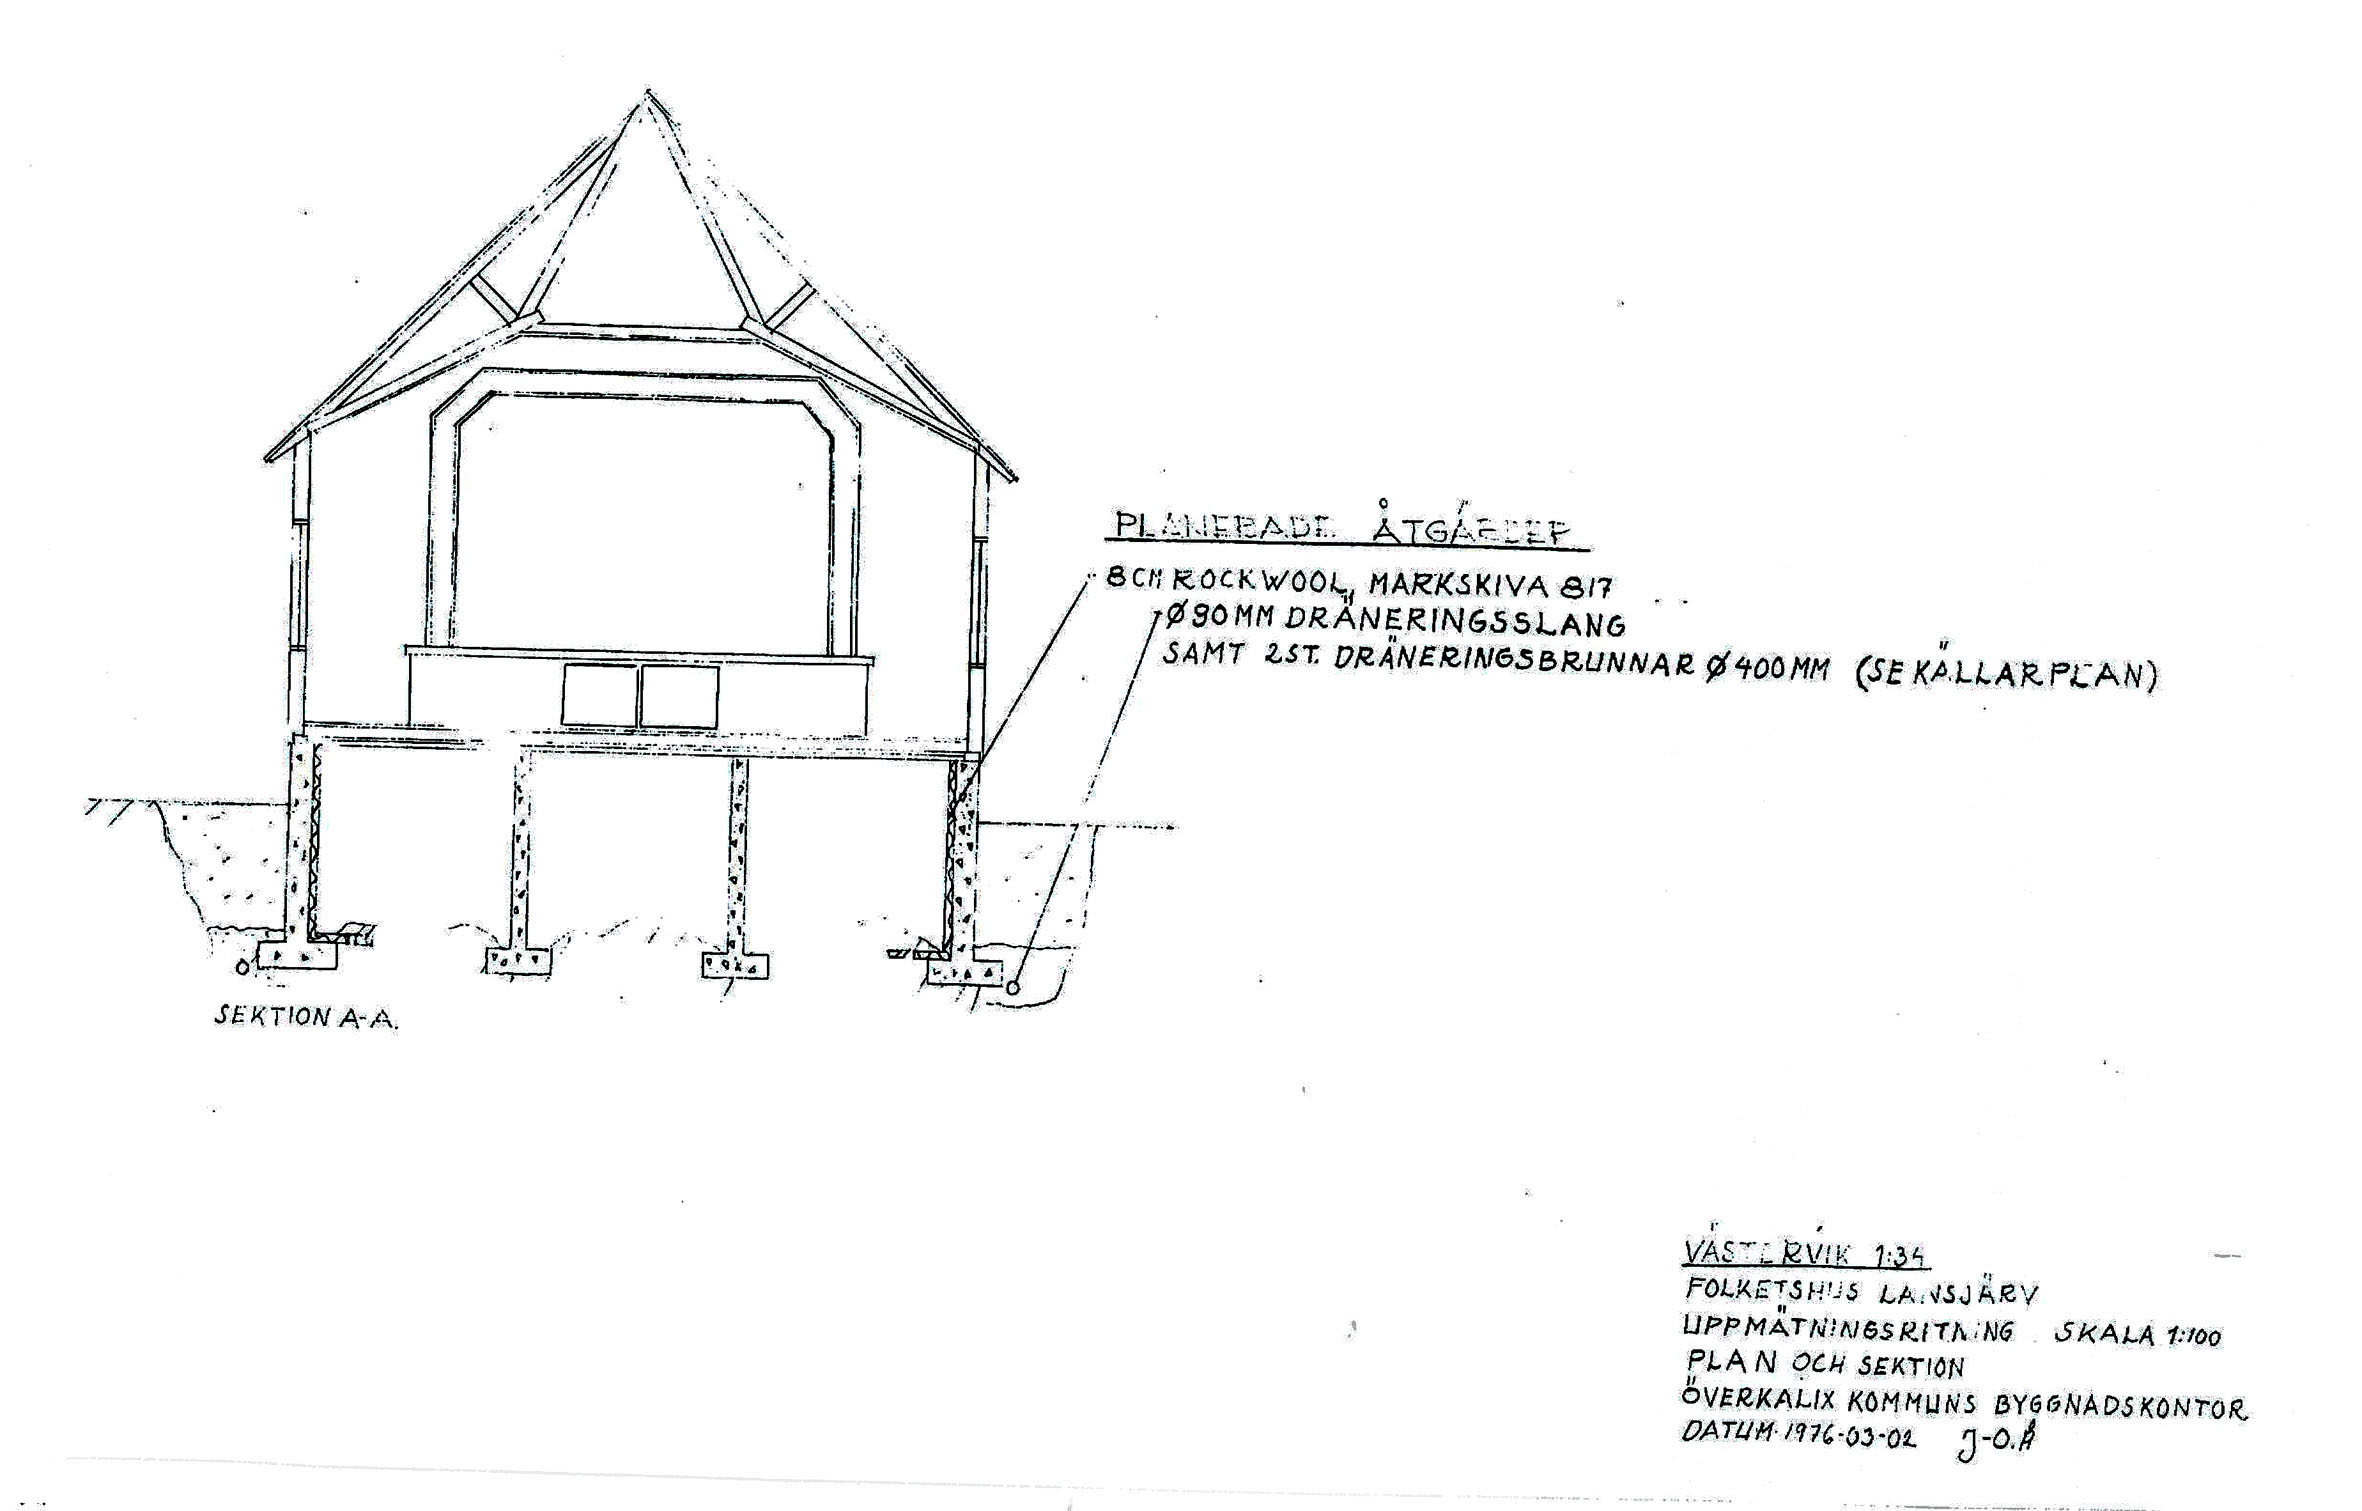 PLANERADE ÅTGÄRDER
8 CM ROCKWOOL, MARKSKIVA 817
Ø 90 MM DRÄNERINGSSLANG
SAMT 2 ST. DRÄNERINGSBRUNNAR Ø 400 MM (SE KÄLLARPLAN)
SEKTION A-A.
VÄSTERVIK 1:34
FOLKETSHUS LANSJÄRV
UPPMÄTNINGSRITNING SKALA 1:100
PLAN OCH SEKTION
ÖVERKALIX KOMMUNS BYGGNADSKONTOR
DATUM 1976-03-02 J-O.Å